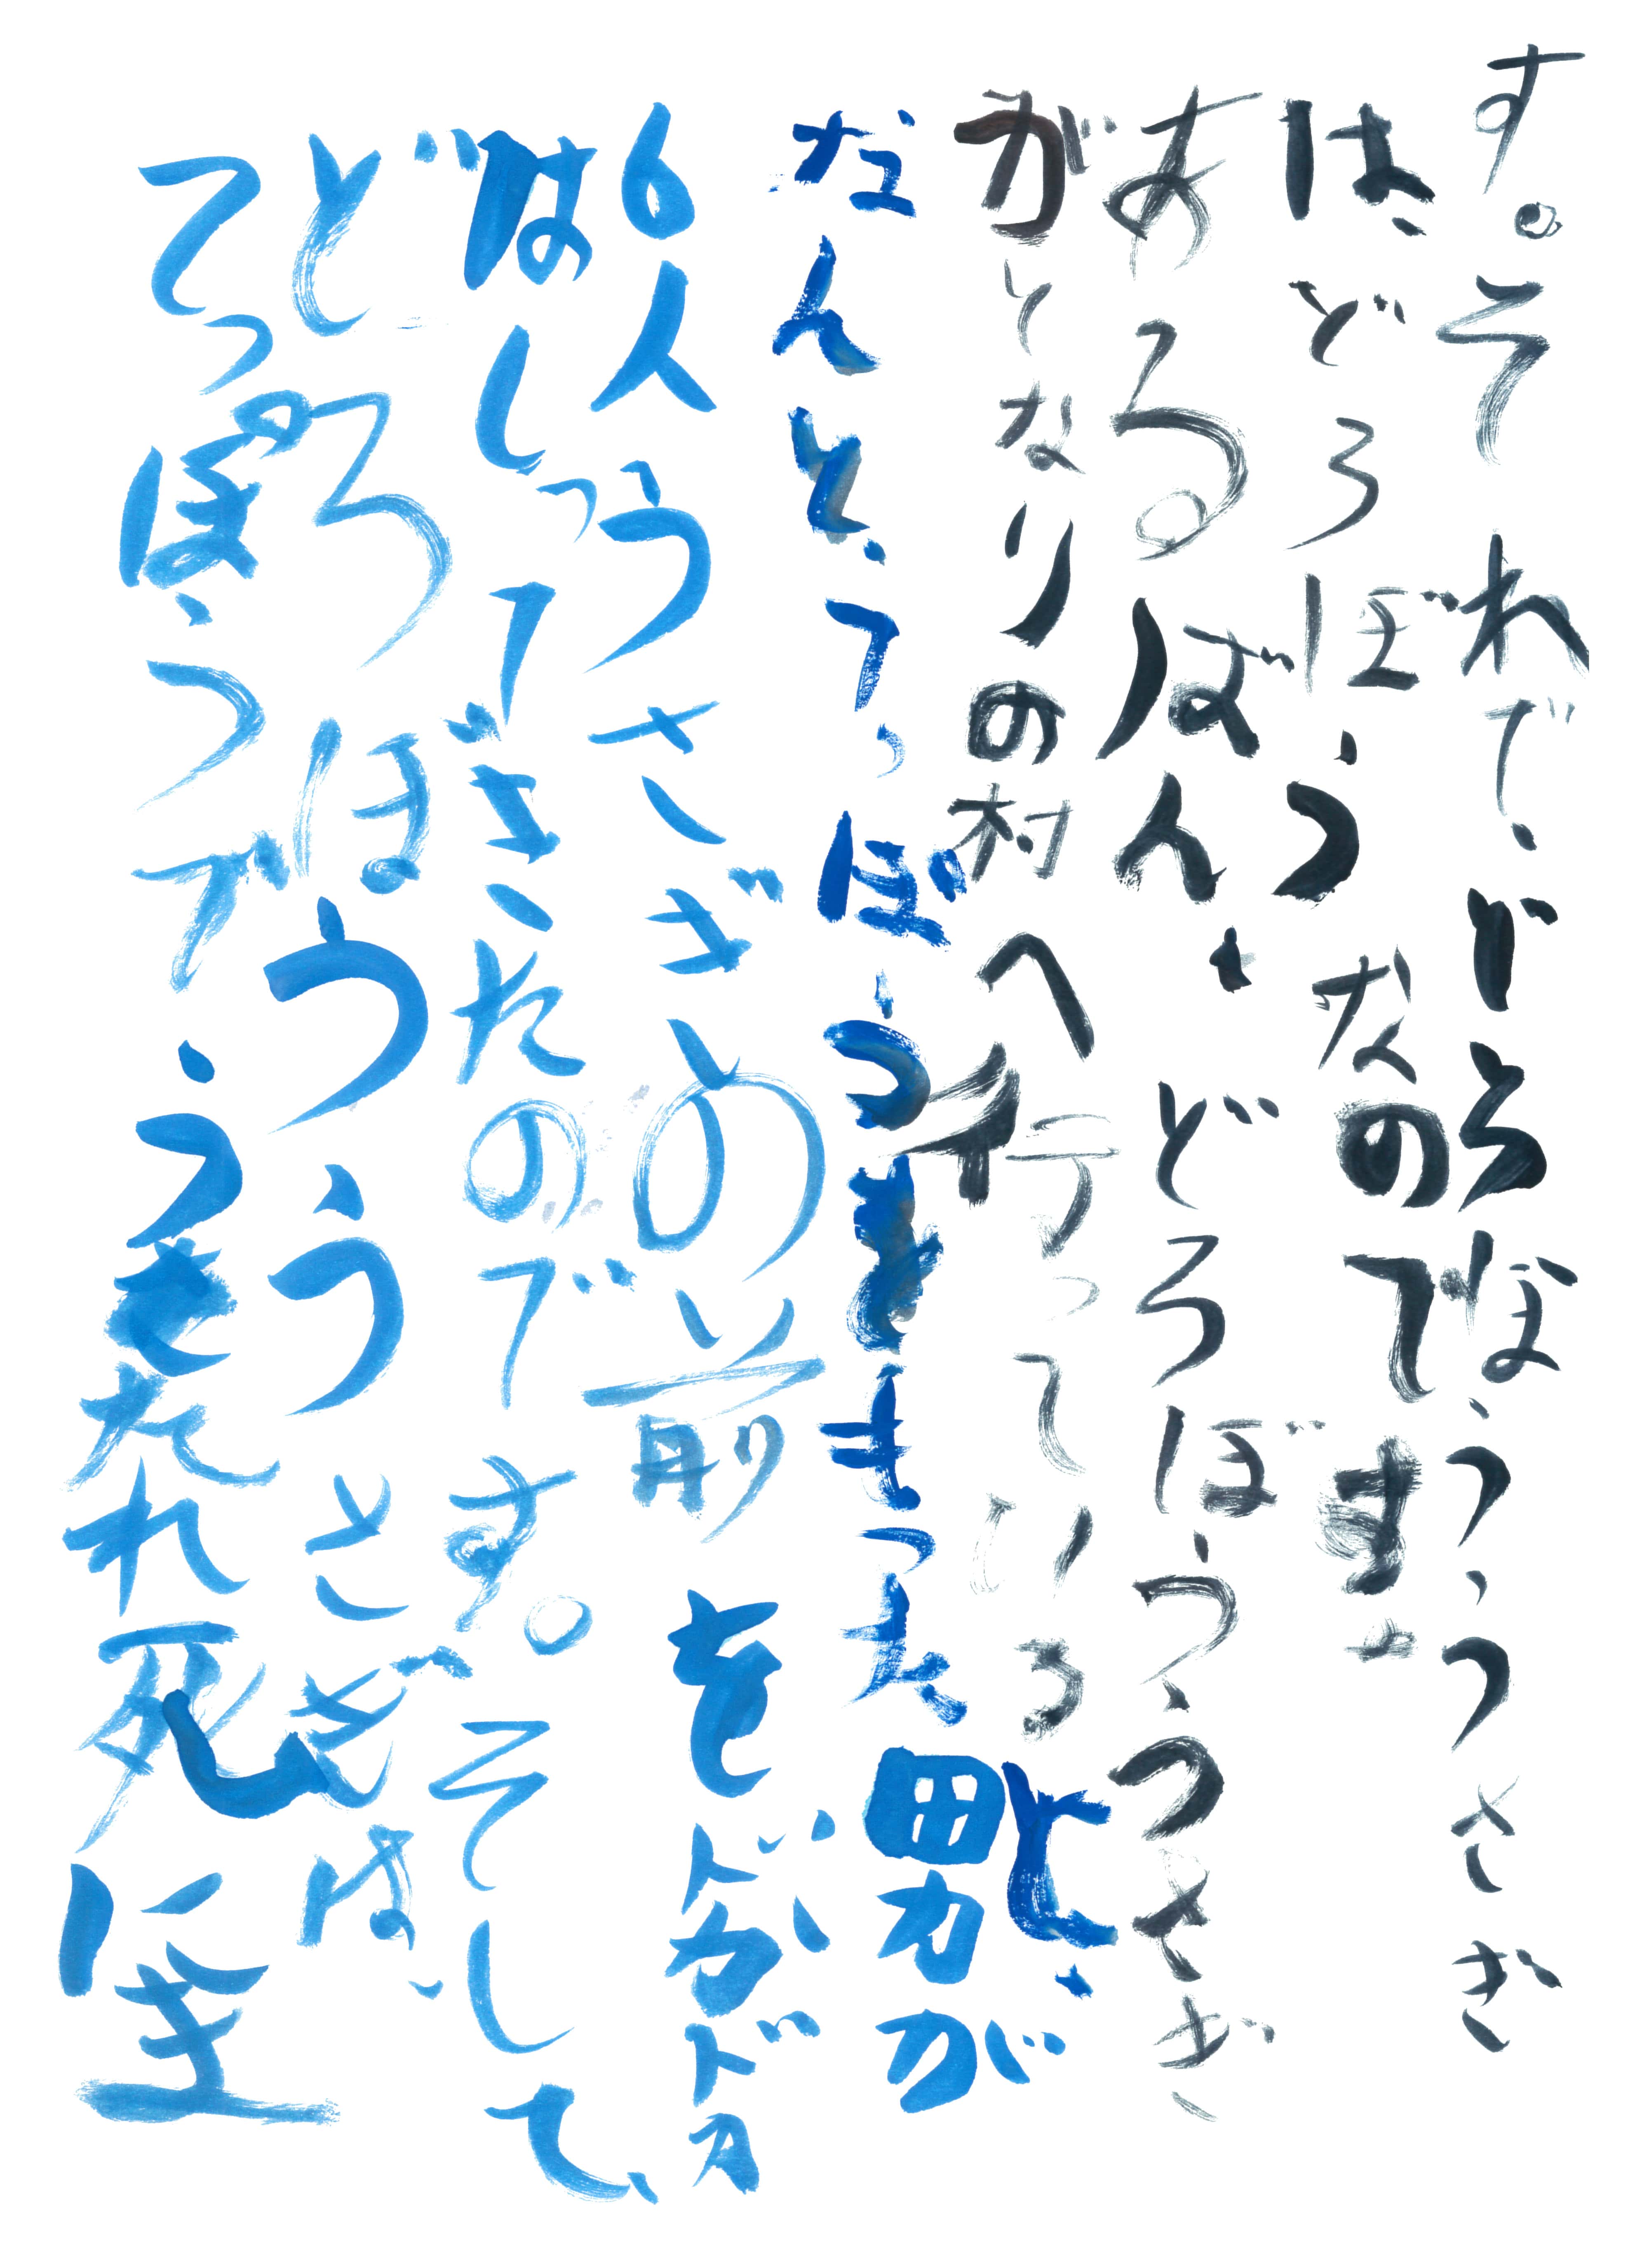 す。それで、どろぼううさぎ
は、どろぼうなのです。
あるばん、どろぼううさぎ
がとなりの村へ行っていると、
なんと、てっぽうをもった男が
6人うさぎの前をドカドカ
はしってきたのです。そして、
どろぼううさぎは、
てっぽうで、うたれ死